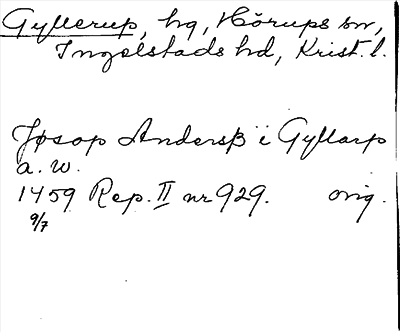 Gyllerup, hg, Hörups sn,
Ingelstads hd, Krist. l.
Jøsop Anderss i Gyllarp
a. w.
1459 Rep. II nr 929. orig.
9/7